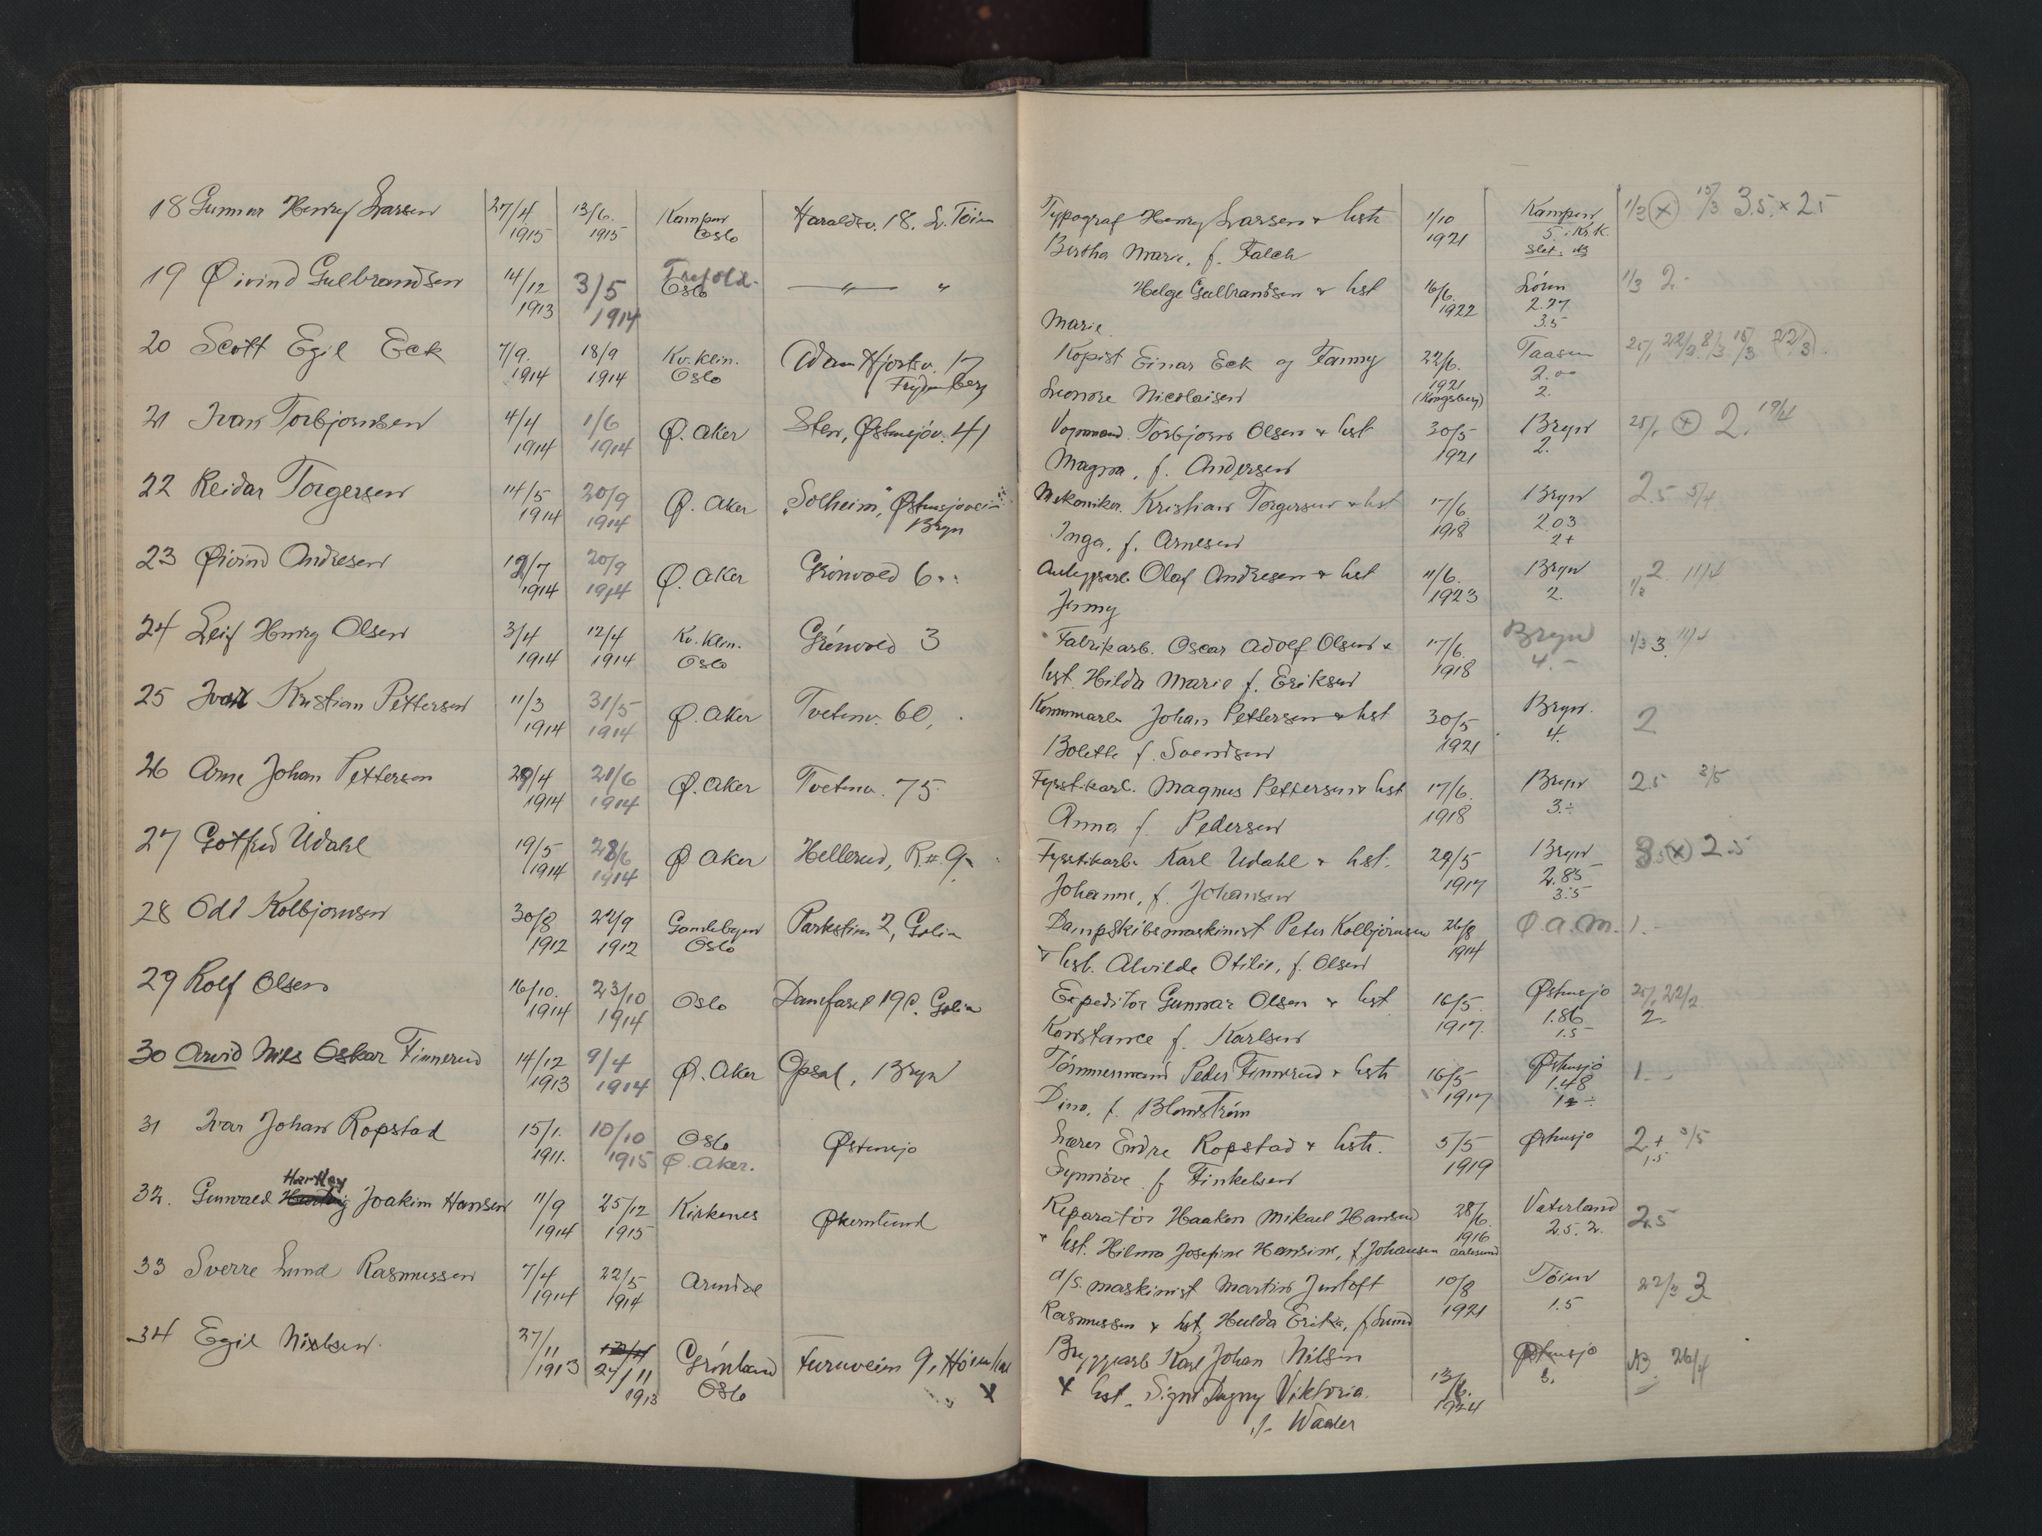 18 Gunnar Henry Larsen 27/4 1915 13/6. 1915 Kampen Oslo Haraldsv. 18. L. Töien
Typograf Henry Larsen & hstr 1/10 1921 Kampen 5. i Krk. 1/3 (x) 15/3 3.5. x 2.5
Bertha Marie, f. Falch
19 Øivind Gulbrandsen 14/12 1913 3/5 1914 Trefold. Oslo —„— „
Helge Gulbrandsen & hst 16/6. 1922 Lören 2.27 3.5 1/3 2.-
Marie
20 Scott Egil Eck 7/9. 1914 18/9 1914 Kv. klin. Oslo Adam Hjortsv. 17 Frydenberg
Kopist Einar Eck og Fanny 22/6. 1921 (Kongsberg) Taasen 2.00 2. 25/1 22/2 8/3 15/3 (22/3).
Leonore Nicolaisen
21 Ivar Torbjørnsen 4/4 1914 1/6 1914 Ø. Aker Sten, Østensjöv. 41
Vognmand. Torbjørn Olsen & hst 30/5 1921 Bryn 2. 25/1 (x) 2. 19/4
Magna, f. Andersen
22 Reidar Torgersen 14/5 1914 20/9 1914 Ø. Aker „Solheim", Østensjøveien Bryn
Mekaniker. Kristian Torgersen & hst 17/6 1918 Bryn 2 03 2+ 2.5 5/4
Inga, f. Arnesen
23 Øivind Andresen 19/7 1914 20/9 1914 Ø. Aker Grönvold 6
Anlegsarb. Olaf Andresen & hst 11/6. 1923 Bryn 2. 1/3 2. 11/4
Jenny
24 Leif Henry Olsen 3/4 1914 12/4 1914 Kv. klin. Oslo Grönvold 3
Fabrikarb. Oscar Adolf Olsen & 17/6. 1918 Bryn 4.- 1/3 3. 11/4
hst. Hilda Marie f. Eriksen
25 Ivar Kristian Pettersen 11/3 1914 31/5 1914 Ø. Aker Tvetenv. 60,
Kommunearb. Johan Pettersen & hst 30/5 1921 Bryn. 4. 2
Bolette f. Svendsen
26 Arne Johan Petterson 29/4 1914 21/6 1914 Ø. Aker Tvetenv. 75
Fyrstikarb. Magnus Pettersen & hst 17/6. 1918 Bryn 3.÷ 2.5 3/5
Anna f. Pedersen
27 Gotfred Udahl 19/5 1914 28/6 1914 Ø Aker Hellerud, R. 9
Fyrstikarb. Karl Udahl & hst. 29/5 1917 Bryn 2.85 3.5 3.5 (x) 2.5
Johanne, f. Johansen
28 Odd Kolbjørnsen 30/8 1912 22/9 1912 Gamlebyen Oslo Parkstien 2, Golia
Dampskibsmaskinist Peter Kolbjörnsen 26/8 1914 Ø.a.M. 1.-
& hst. Alvilde Otilie, f. Olsen
29 Rolf Olsen 16/10. 1914 23/10 1914 Oslo Danefaret 19c. Golia
Expeditör Gunnar Olsen & hst 16/5 1917. Østensjo 1.86 1.5 25/1 22/2 2.
Konstance f. Karlsen
30 Arvid Nils Oskar Finnerud 14/12 1913 9/4 1914 Ø. Aker Opsal, Bryn
Tömmermand Peder Finnerud & hstr 16/5 1917 Østensjo 1.48 1.-
Dina, f. Blomström
31 Ivar Johan Ropstad 15/1. 1911. 10/10 1915 Oslo Ø. Aker. Østensjo
Lærer Endre Ropstad & hstr. 5/5 1919 Østensjo 2.+ 1.5 3/5
Synnöve f. Finkelsen
32. Gunvald Hartley Joakim Hansen 11/9 1914 25/12 1915 Kirkenes Økernlund
Reparatör Haaken Mikael Hansen 28/6. 1916 Aalesund Vaterland 2.5. 2. 2.5
& hst. Hilma Josefine Hansine, f. Johansen
33 Sverre Lund Rasmussen 7/4 1914 22/5 1914 Arendal
d/s. maskinist Martin Justoft 10/8 1921 Töien 1.5 22/3 3
Rasmussen & hst. Hulda Erika, f. Lund
34 Egil Nielsen. 27/11 1913 24/11 1913 Grönland Oslo Furuveien 9,
Bryggearb Karl Johan Nilsen 13/6. 1924 Østensjo 3. 26/4
& hst. Signe Dagny Viktoria.
f. Waaler